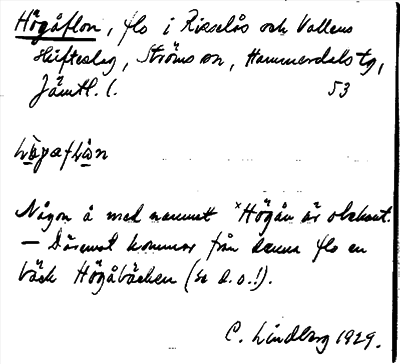 Högåflon, flo i Risselås och Vallens
skifteslag, Ströms sn, Hammerdals tg,
Jämtl. l. 53
Någon å med namnet ˣHögån är obekant.
— Däremot kommer från denna flo en
bäck Högåbäcken (se d.o.!).
C. Lindberg 1929.